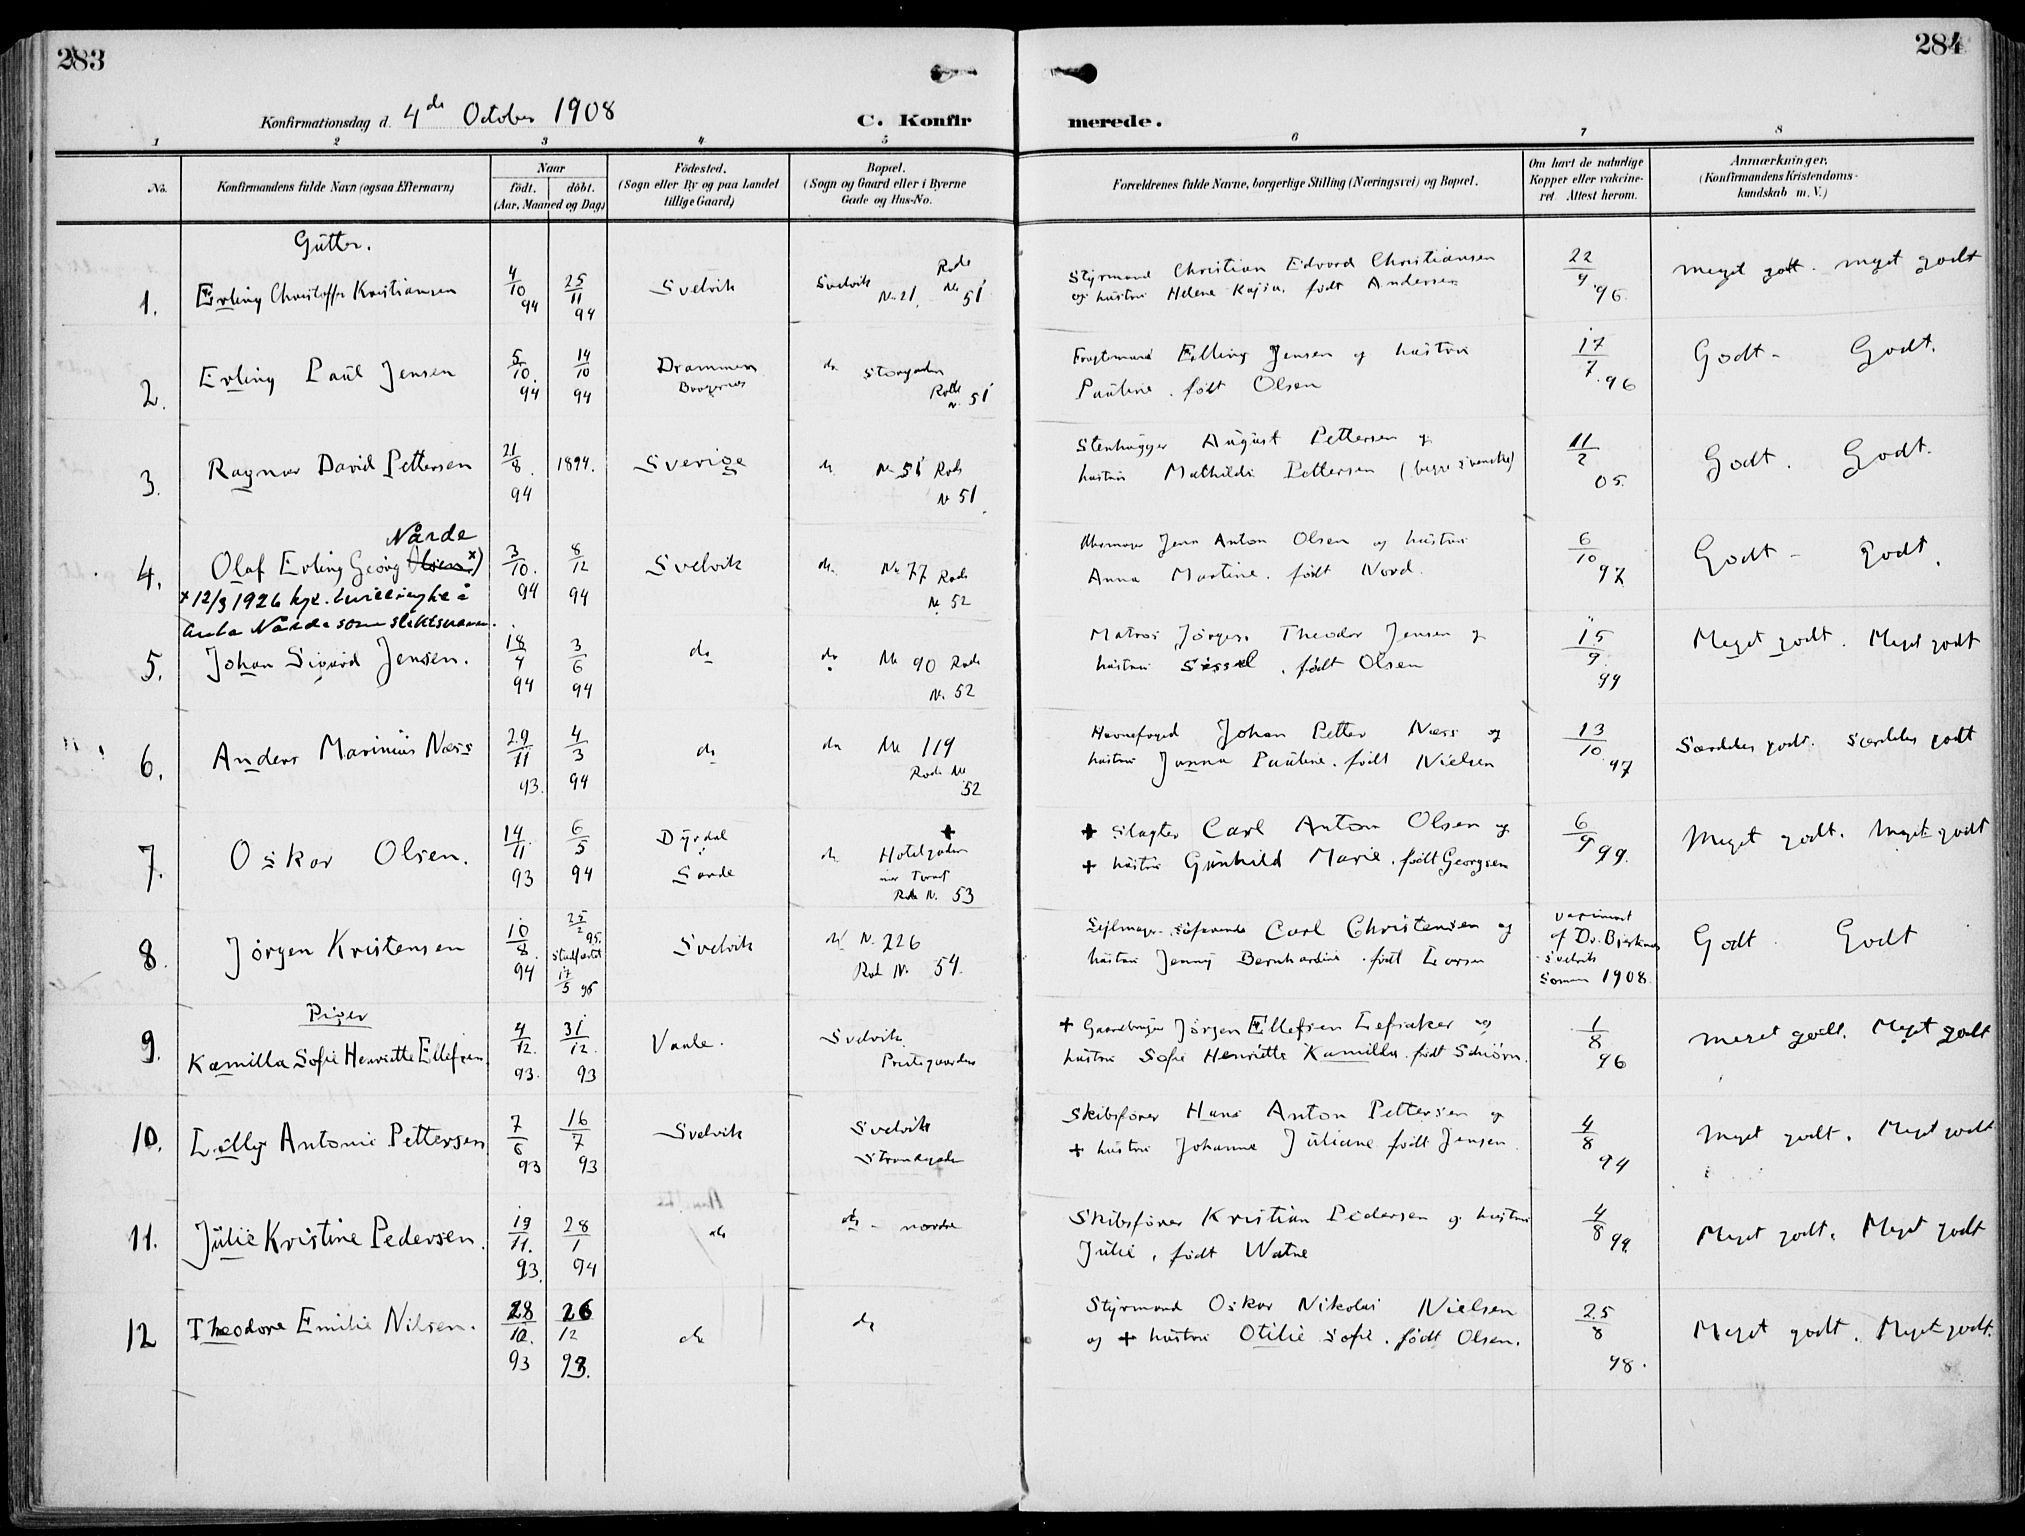 283
284
Konfirmationsdag d. 4de October 1908
C. Konfirmerede.
1 2 3 4 5 6 7 8
No.
Konfirmandens fulde Navn (ogsaa Efternavn)
Naar
födt. döbt.
(Aar, Maaned og Dag)
Födested.
(Sogn eller By og paa Landet
tillige Gaard)
Bopæl.
(Sogn og Gaard eller i Byerne
Gade og Hus-No.
Forældrenes fulde Navne, borgerlige Stilling (Næringsvei) og Bopæl.
Om havt de naturlige
Kopper eller vakcine-
ret. Attest herom.
Anmærkninger.
(Konfirmandens Kristendoms-
kundskab m. V.)
Gutter.
1. Erling Christoffer Kristiansen 4/10 94 25/11 94 Svelvik Svelvik No. 21. Rode No. 51
Styrmand Christian Edvard Christiansen
og hustru Helene Kajsa, født Andersen
22/9 96. Meget godt. Meget godt
2. Erling Paul Jensen 5/10 94 14/10 94 Drammen Bragernes do Storgaden Rode N. 51
Elling Jensen og hustru
Pauline, født Olsen
17/7 96 Godt - Godt.
3. Ragnar David Pettersen 21/8 94 1894. Sverige do No 51 Rode N 51
Stenhugger August Pettersen og
hustru Mathilde Pettersen (begge svenske)
11/2 05. Godt. Godt.
Nårde
4. Olaf Erling Georg Olsen x) 3/10. 94 8/12 94 Svelvik do No 77 Rode No 52
x 12/3 1926 kgl. bevilling til å
anta Nårde som slektsnavn.
Jens Anton Olsen og hustru
Anna Martine, født Nord.
6/10 97 Godt - Godt.
5. Johan Sigurd Jensen. 18/4 94 3/6 94 do do No 90 Rode N. 52
Matros Jørgen Theodor Jensen og
hustru Sissel, født Olsen
15/9 99 Meget godt. Meget godt
6. Anders Marinius Næss 29/11 93. 4/3 94 do do No 119 Rode No 52
Havnefoged Johan Petter Næss og
hustru Janna Pauline, født Nielsen
13/10 97 Særdeles godt. Særdeles godt
7. Oskar Olsen. 14/11 93 6/5 94 Dyrdal Sande do + Hotelgaden Rode N. 53
+ Slagter Carl Anton Olsen og
+ hustru Gunhild Marie, født Georgsen
6/9 99. Meget godt. Meget godt
8. Jørgen Kristensen 10/8 94 25/2 95. stadfæstet 17/5 95 Svelvik do N. 226 Rode No 54.
Sejlmager Carl Christensen og
hustru Jenny Bernhardine, født Larsen
vaccineret
af Dr. Bjerknes
Svelvik
Sommer 1908.
Godt Godt
Piger
9. Kamilla Sofie Henriette Ellefsen. 4/12. 93. 31/12. 93 Vaale. Svelvik. Prestegaarden
+ Gaardbruger Jørgen Ellefsen Lefsaker og
hustru Sofie Henriette Kamilla, født Schiørn.
1/8 96 Meget godt. Meget godt
10. Lilly Antonie Pettersen 7/6 93 16/7 93 Svelvik Svelvik Strandgaden
Skibsfører Hans Anton Pettersen og
+ hustru Johanne Juliane født Jensen.
4/8 94 Meget godt. Meget godt
11. Julie Kristine Pedersen. 19/11. 93. 28/1 94 do do - nordre
Skibsfører Kristian Pedersen og hustru
Julie, født Watne
4/8 99. Meget godt. Meget godt
12 Theodore Emilie Nilsen. 28/10. 93 26/12 93. do do
Styrmand Oskar Nikolai Nielsen
og + hustru Otilie Sofie, født Olsen.
25/8 98. Meget godt. Meget godt.